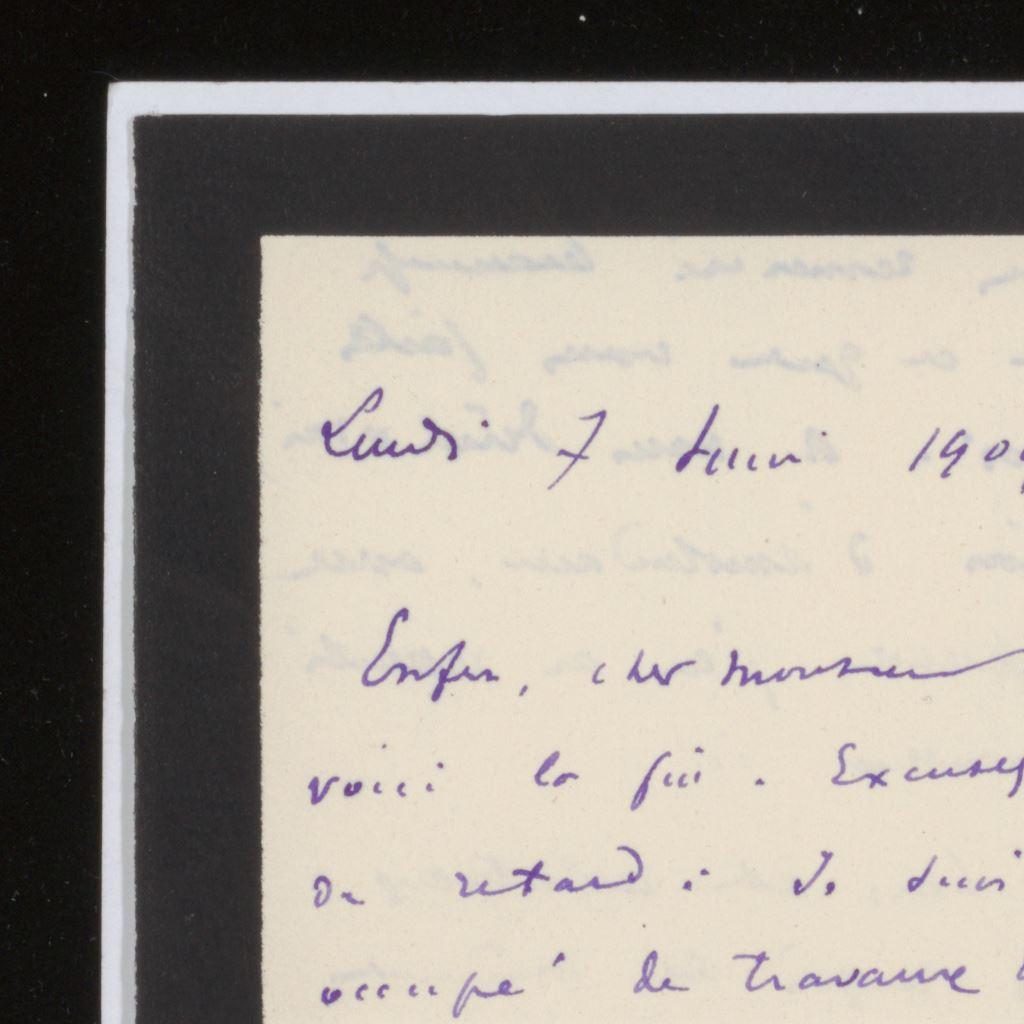 Lundi 7 Juin 190
Enfin, cher monsieur
voici la fin. Excusez
de retard : Je suis
occupé de travaux